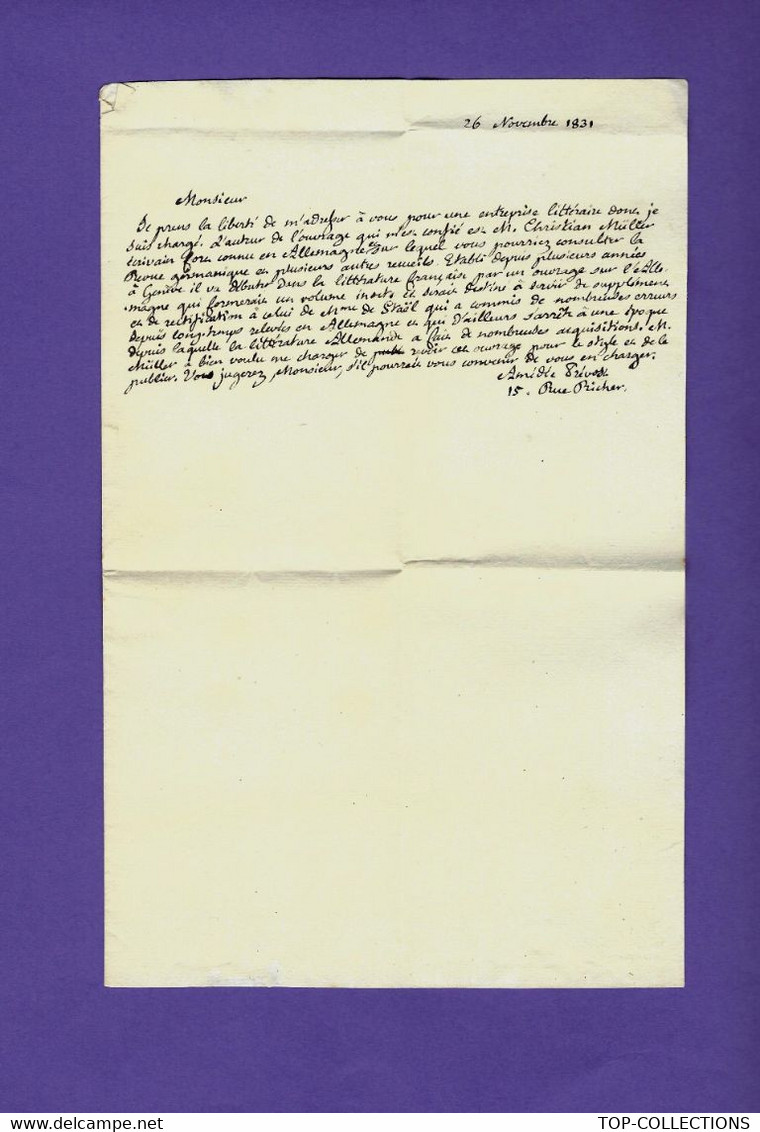 26 Novembre 1831
Monsieur
Je prens la liberté de m'adresser à vous pour une entreprise littéraire dont je
suis chargé. L'auteur de l'ouvrage qui m'est confié est M. Christian Müller
écrivain fort connu en Allemagne, sur lequel vous pourriez consulter la
Revue germanique et plusieurs autres recueils. Etabli depuis plusieurs années
à Genève il va débuter dans la littérature française par un ouvrage sur l'Alle-
magne qui formerait un volume in octo et serait destiné à servir de supplément
et de rectification à celui de Mme de Staël qui a commis de nombreuses erreurs
depuis long-temps relevées en Allemagne et qui d'ailleurs s'arrête à une époque
depuis laquelle la littérature Allemande a fait de nombreuses acquisitions. M.
Müller a bien voulu me charger de revoir cet ouvrage pour le style et de le
publier. Vous jugerez, Monsieur, s'il pourrait vous convenir de vous en charger.
Amédée Prévost
15. Rue Richer.
TOP-COLLECTIONS